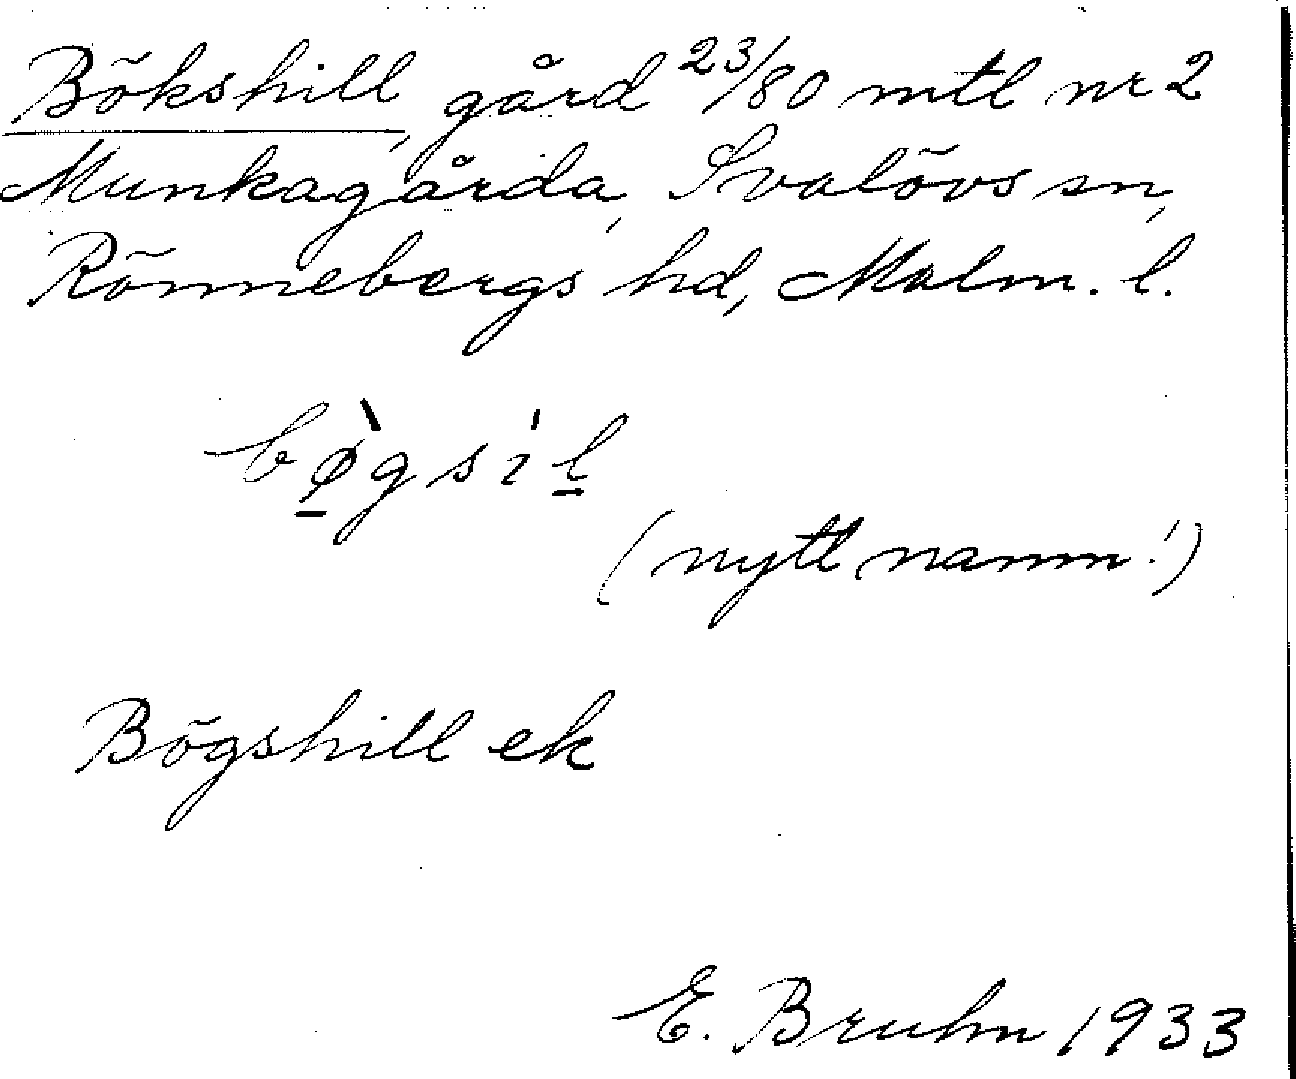 Bökshill, gård 23/80 mtl nr 2
Munkagårda, Svalövs sn,
Rönnebergs hd, Malm. l.
bø̠̀gsi̍l̠
(nytt namn!)
Bögshill ek
E. Bruhn 1933